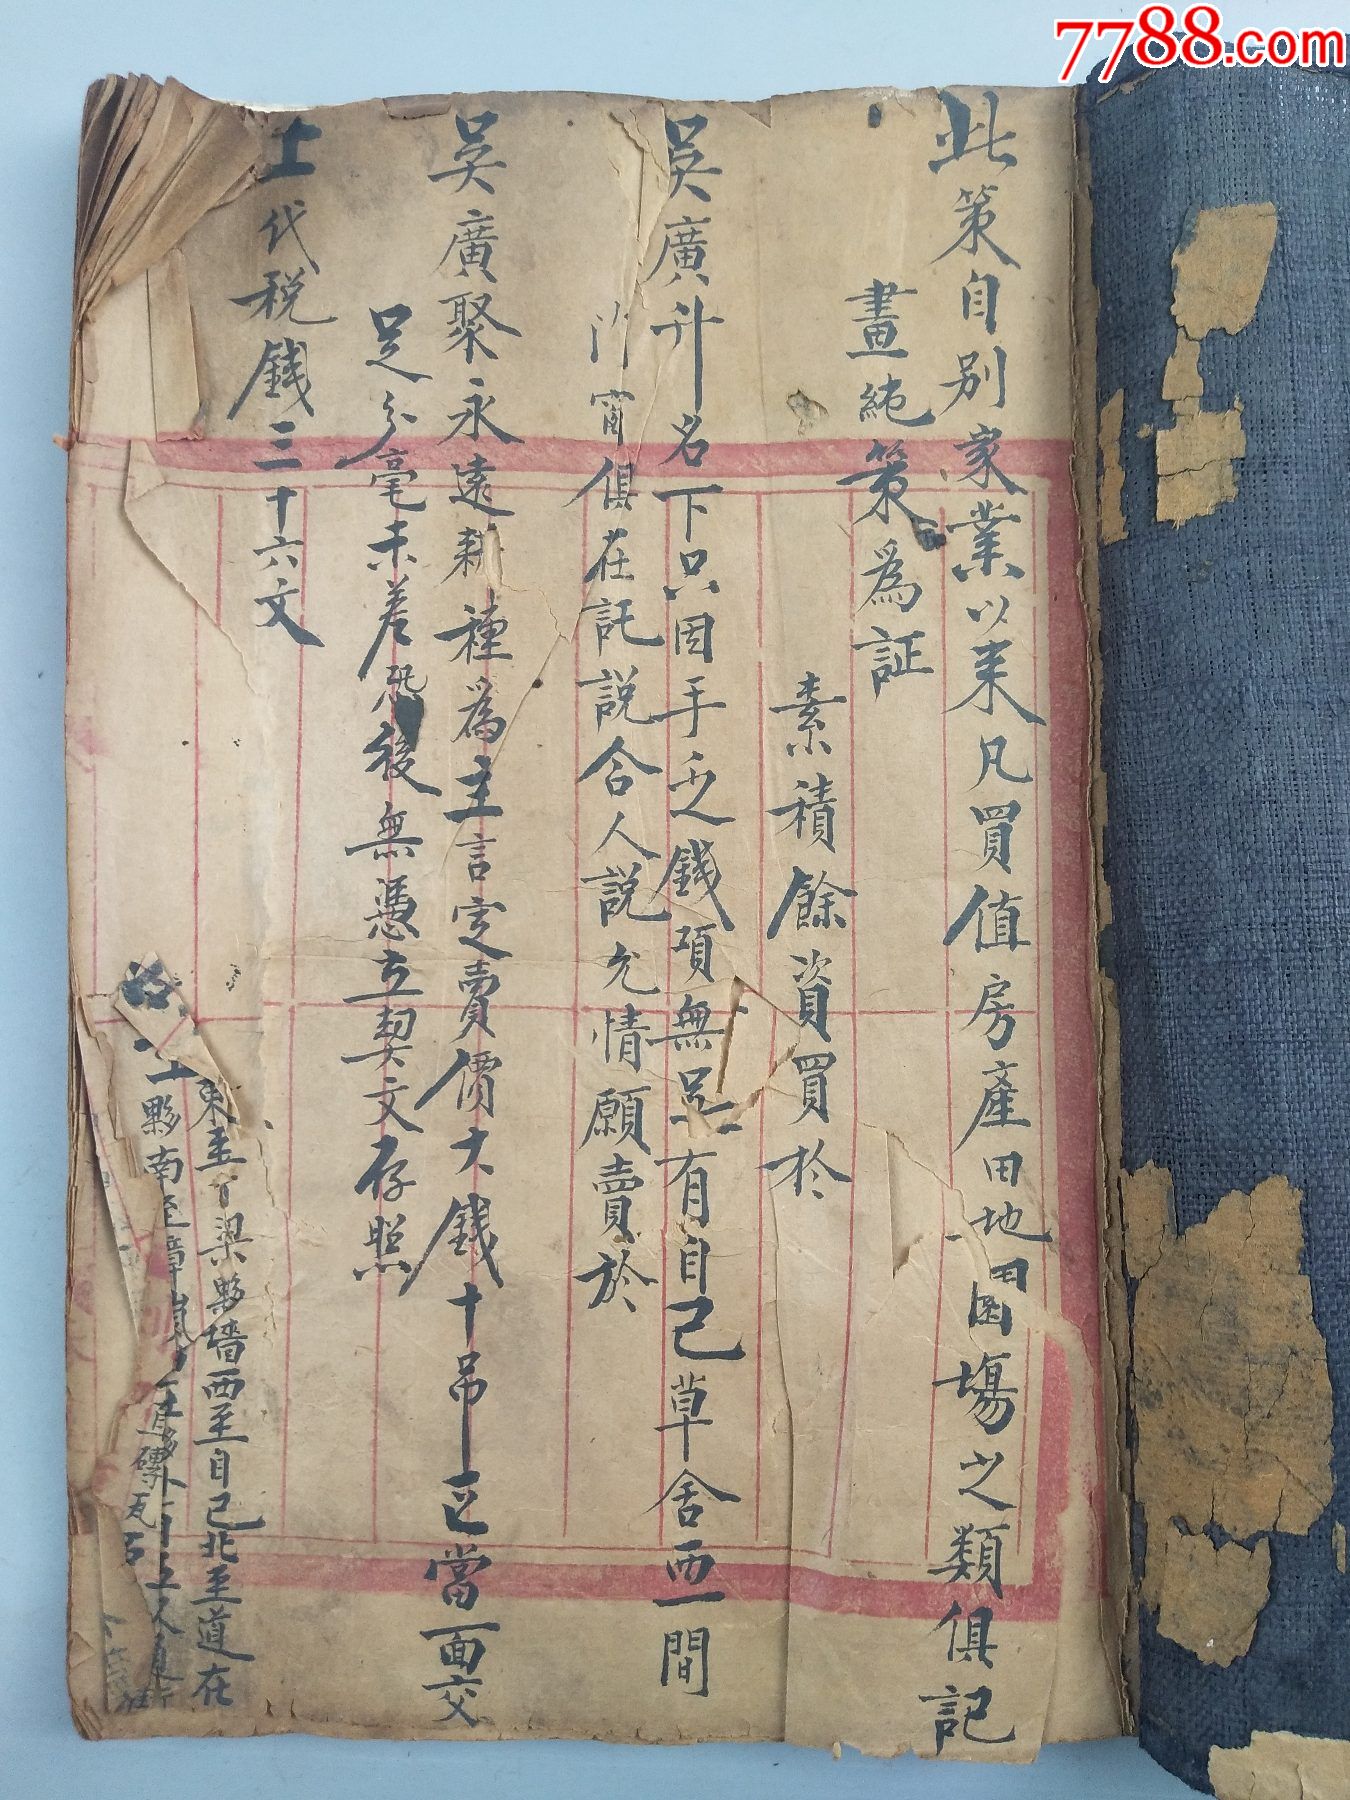 7788.com
此策自别家業以来凡買值房產田地園塲之類俱記
畫純策為証
素積餘資買於
吴廣升名下只因手乏錢項無足有自己草舍西一間
門窗俱在託説合人説允情願賣於
吴廣聚永遠耕種為主言定賣價大錢十吊已當面交
足分毫未差恐後無憑立契文存照
士代税錢三十六文
東至丁梁夥墙西至自己北至道在
夥南至
磚瓦石